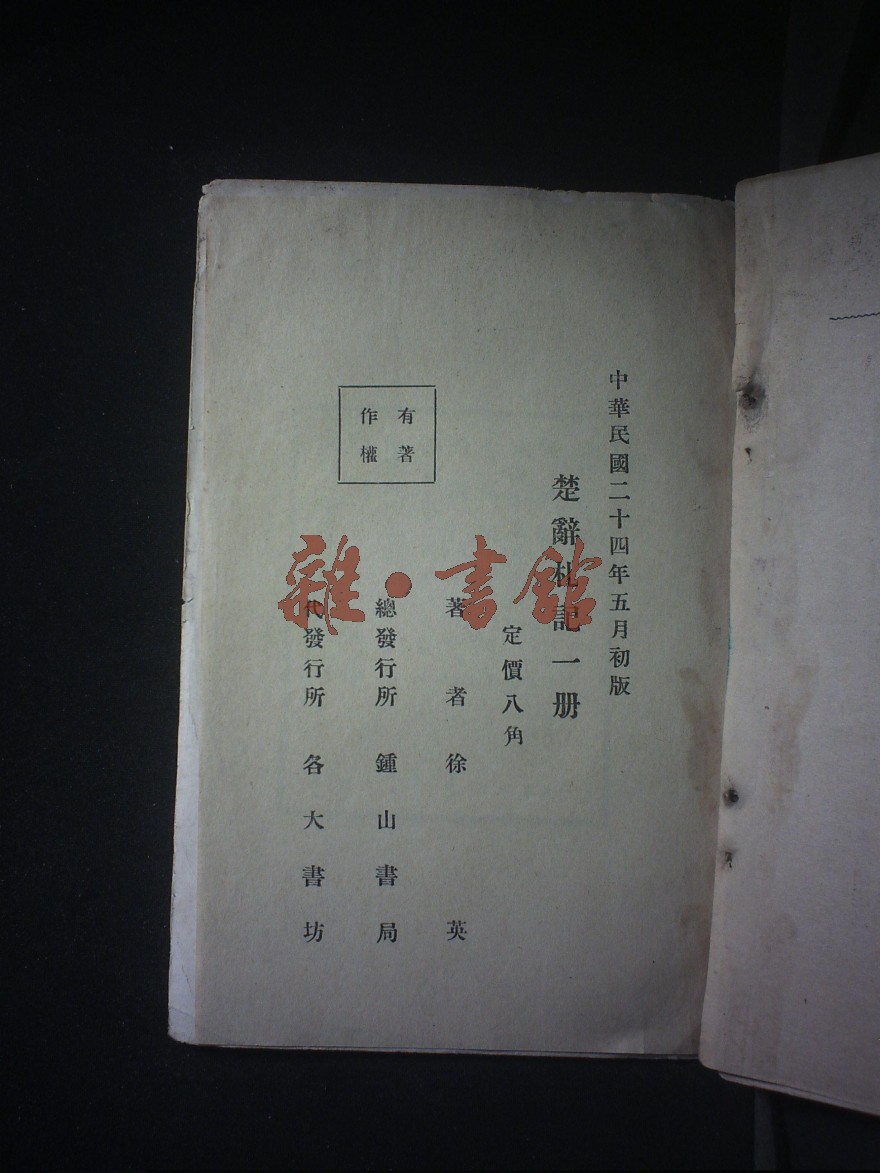 中華民國二十四年五月初版
楚辭札記一册
定價八角
著者徐英
總發行所 鍾山書局
代發行所 各大書坊
有著
作權
雜·書館